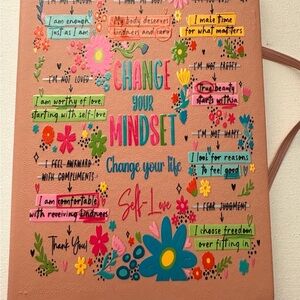 I am enough
just as I am
My body deserves
kindness and care
I make time
for what matters
I'M NOT LOVED
I'M NOT PRETTY
CHANGE
YOUR
MINDSET
Change your life
I am worthy of love,
starting with self-love
True beauty
starts within
I'M NOT HAPPY
I FEEL AWKWARD
WITH COMPLIMENTS
I look for reasons
to feel good
I am comfortable
with receiving kindness
Self-Love
I FEAR JUDGMENT
Thank You!
I choose freedom
over fitting in